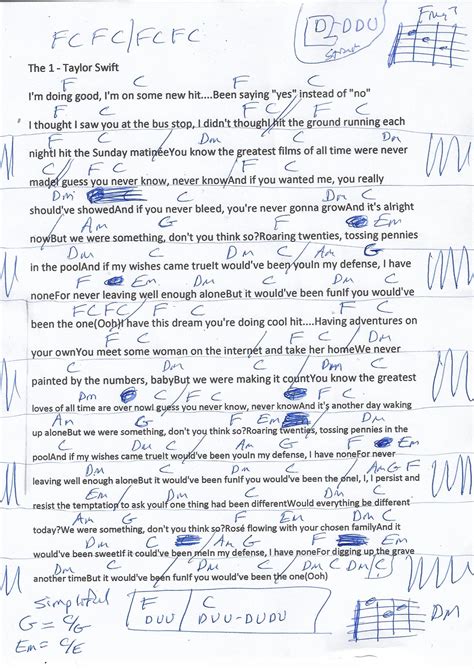 FCFC/FCFC
D DDU
The 1 - Taylor Swift
F C F C
I'm doing good, I'm on some new hit....Been saying "yes" instead of "no"
F C F C
I thought I saw you at the bus stop, I didn't thoughI hit the ground running each
Dm C Dm
nightI hit the Sunday matineeYou know the greatest films of all time were never
C F C F C
madeI guess you never know, never knowAnd if you wanted me, you really
Dm F C
should've showedAnd if you never bleed, you're never gonna growAnd it's alright
F Em
nowBut we were something, don't you think so?Roaring twenties, tossing pennies
Dm C Am G
in the poolAnd if my wishes came trueIt would've been youIn my defense, I have
F Em Dm C
noneFor never leaving well enough aloneBut it would've been funIf you would've
FC/FC F C
been the one(Ooh)I have this dream you're doing cool hit....Having adventures on
F C F C
your ownYou meet some woman on the internet and take her homeWe never
Dm C F C
painted by the numbers, babyBut we were making it countYou know the greatest
Dm C F C
loves of all time are over nowI guess you never know, never knowAnd it's another day waking
Am G F Em
up aloneBut we were something, don't you think so?Roaring twenties, tossing pennies in the
C Dm C Am G F Em
poolAnd if my wishes came trueIt would've been youIn my defense, I have noneFor never
Dm C Dm Am G F
leaving well enough aloneBut it would've been funIf you would've been the oneI, I, I persist and
Em Dm C
resist the temptation to ask youIf one thing had been differentWould everything be different
Am G F Em Dm
today?We were something, don't you think so?Rosé flowing with your chosen familyAnd it
C Dm C Am G F Em
would've been sweetIf it could've been meIn my defense, I have noneFor digging up the grave
Dm C Dm C Dm C
another timeBut it would've been funIf you would've been the one(Ooh)
G = C/G
Em = C/E
F C
DUU DUU-DUDU
DM